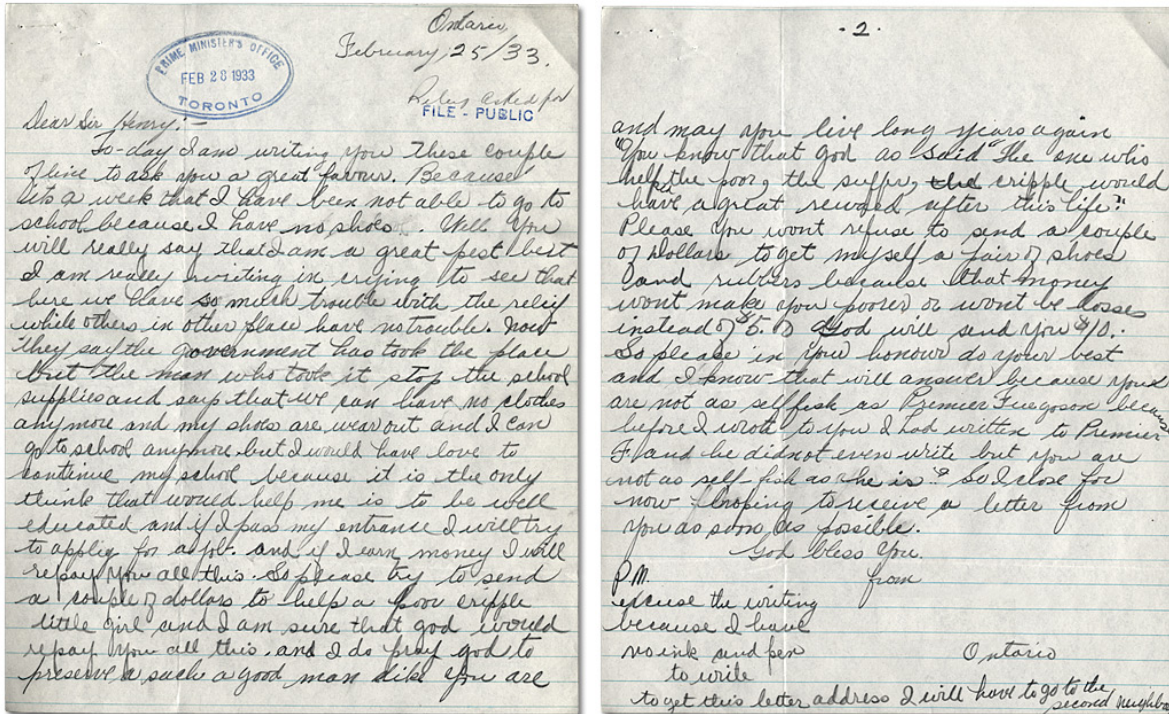 Ontario
February, 25/33.
PRIME MINISTER'S OFFICE
FEB 28 1933
TORONTO
Relief asked for
FILE - PUBLIC
Dear Sir Henry:-
To-day I am writing you these couple
of line to ask you a great favour. Because
its a week that I have been not able to go to
school because I have no shoes. Well you
will really say that I am a great pest best
I am really writing in crying to see that
here we have so much trouble with the relief
while others in other place have no trouble. now
they say the government has took the place
but the man who took it stop the school
supplies and say that we can have no clothes
anymore and my shoes are wear out and I can
go to school anymore but I would have love to
continue my school because it is the only
think that would help me is to be well
educated and if I pass my entrance I will try
to applig for a job. and if I earn money I will
repay you all this. So please try to send
a couple of dollars to help a poor cripple
little girl and I am sure that god would
repay you all this. and I do pray god to
preserve a such a good man like you are
- 2 -
and may you live long years again
"You know that god as said" "He one who
help the poor, the suffer, the cripple would
have a great reward after this life."
Please you wont refuse to send a couple
of Dollars to get myself a pair of shoes
and rubbers because that money
wont make you poorer or wont be losses
instead of $5. God will send you $10.
So please in your honour do your best
and I know that will answer because your
are not as selffish as Premier Fuegoson because
before I wrote to you I had written to Premier
F. and he didnot even write but you are
not as self-fish as he is? So I close for
now hoping to receive a letter from
you as soon as possible.
God bless you.
from
P.M.
excuse the writing
because I have
no ink and pen
to write
Ontario
to get this letter address I will have to go to the
second neighbor